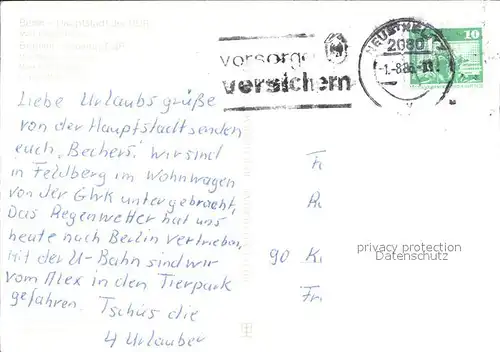 Berlin - Hauptstadt der DDR
vorsorgen
versichern
NEUSTRELITZ
2080
-1.-8.86-
10
Liebe Urlaubsgrüße
von der Hauptstadt senden
euch „Bechers". Wir sind
in Feldberg im Wohnwagen
von der GHK untergebracht.
Das Regenwetter hat uns
heute nach Berlin vertrieben,
Mit der U-Bahn sind wir
vom Alex in den Tierpark
gefahren. Tschüs die
4 Urlauber
90
privacy protection
Datenschutz